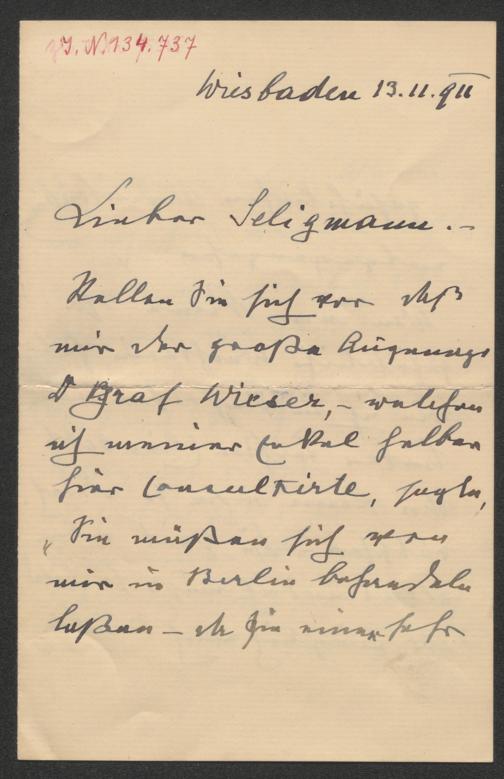 I. N. 134.737
Wiesbaden 13. II. 911
Lieber Seligmann. –
Stellen Sie sich vor daß
mir der große Augenarzt
Dr Graf Wieser, – welchen
ich meiner halber
hier consultirte, sagte,
„Sie müßen sich von
mir in Berlin behandeln
laßen – da Sie einen sehr